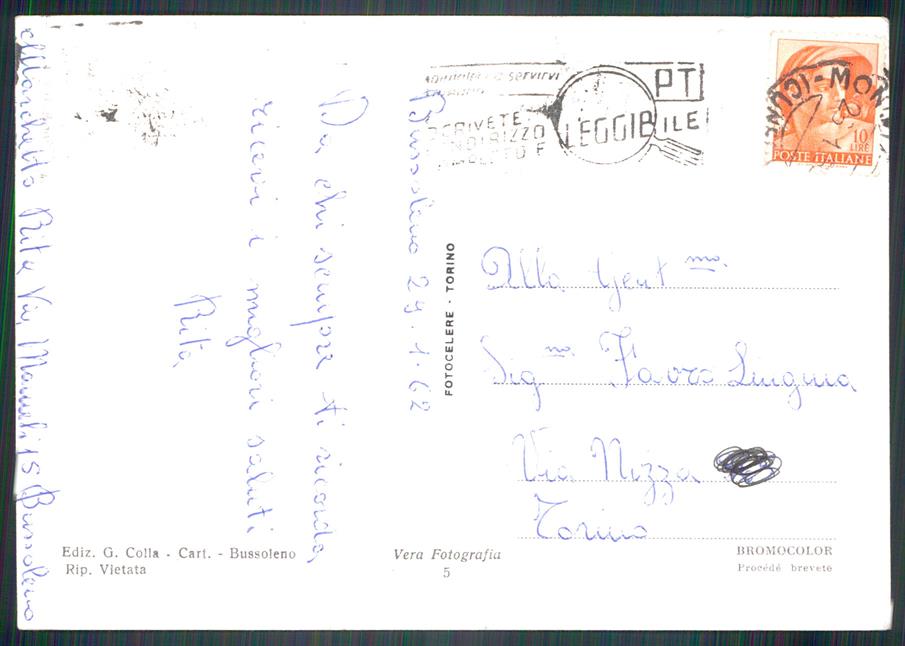 Marchetto Rita Via Mameli 15 Bussoleno
Bussoleno 29.1.62
Da chi sempre ti ricorda,
ricevi i migliori saluti
Rita
servirvi
PT
SCRIVETE
INDIRIZZO
LEGGIBILE
MON
10
LIRE
POSTE ITALIANE
FOTOCELERE - TORINO
Alla Gent.ma
Sig.na Favro
Via Nizza
Torino
Ediz. G. Colla - Cart. - Bussoleno
Rip. Vietata
Vera Fotografia
5
BROMOCOLOR
Procédé breveté